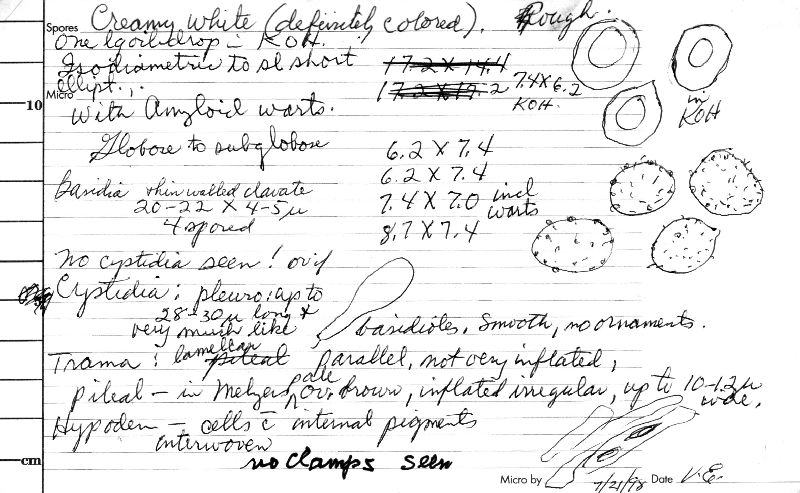 Spores Creamy white (definitely colored). Rough.
One lg oil drop in KOH.
Isodiametric to sl short
ellipt.
17.2 X 14.4
17.2 X 17.2
7.4 X 6.2
KOH.
in
KOH
Micro
10
with Amyloid warts.
Globose to subglobose
6.2 X 7.4
6.2 X 7.4
Basidia thin walled clavate
7.4 X 7.0 incl
warts
20-22 X 4-5µ
4 spored
8.7 X 7.4
no cystidia seen! or if
Cystidia: pleuro: up to
28-30µ long &
very much like
basidioles. Smooth, no ornaments.
Trama: lamellar pileal parallel, not very inflated;
pileal - in Melzers pale ov. brown, inflated irregular, up to 10-12µ
wide.
Hypoderm - cells c̄ internal pigments
interwoven
cm
no clamps seen
Micro by
7/21/98 Date V.E.